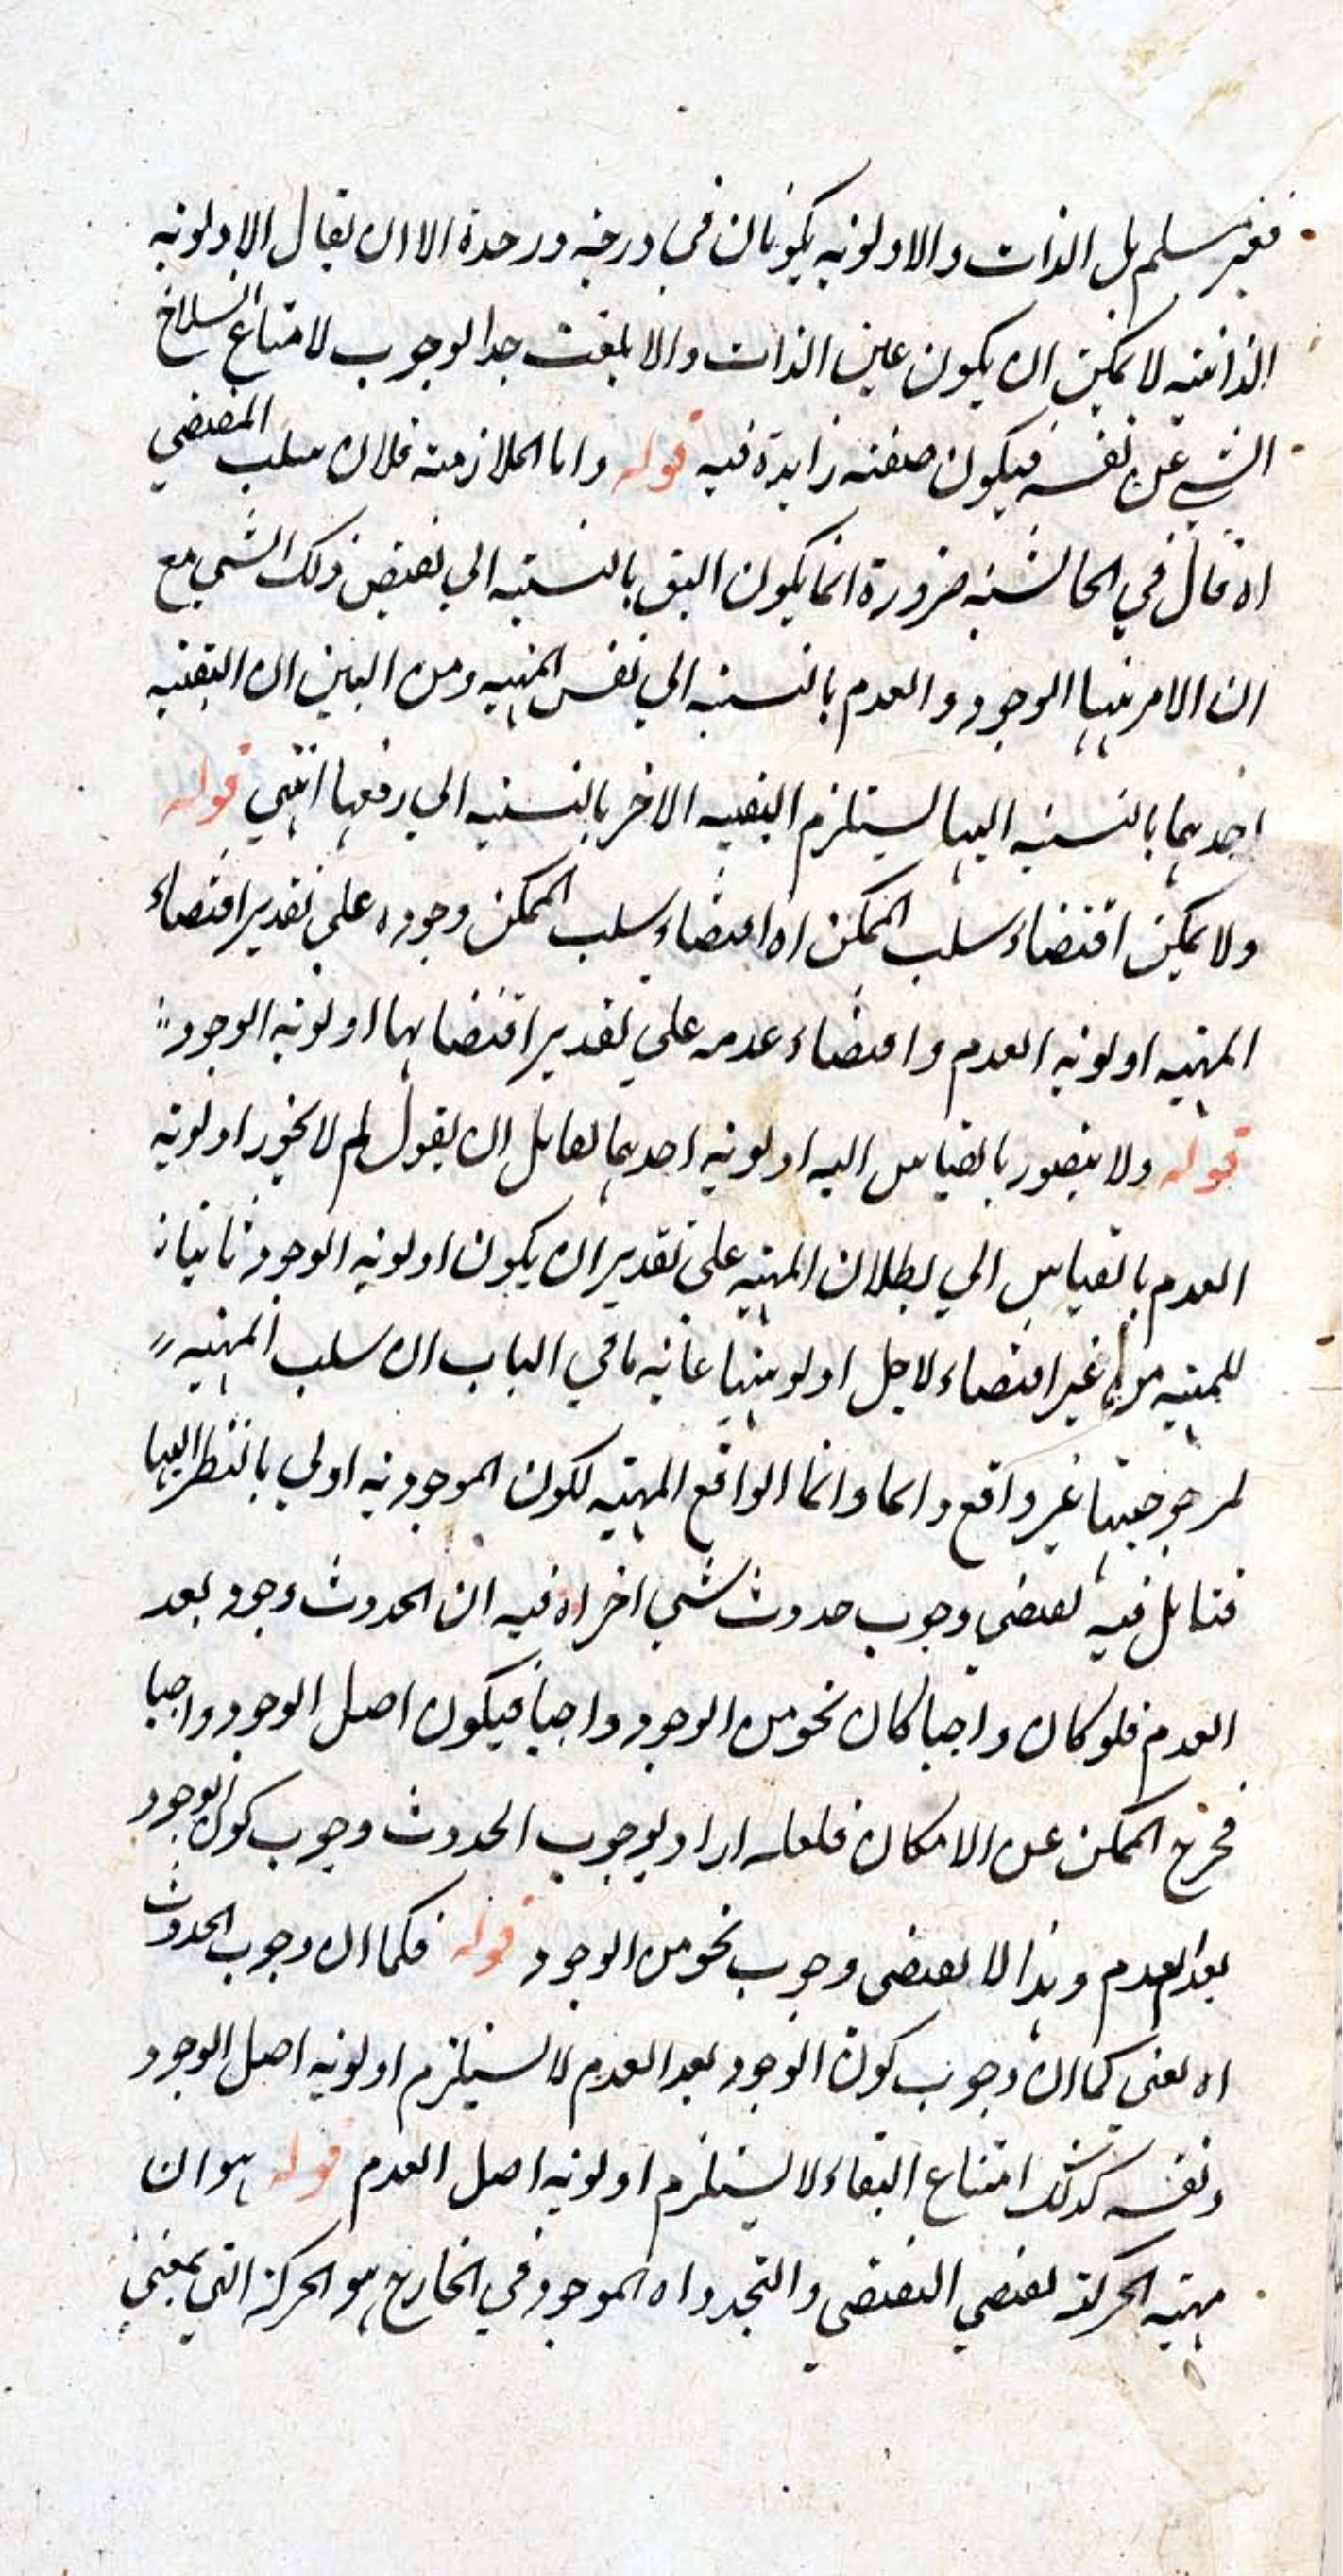 فغير مسلم بل الذات والاولوية يكونان في درجة واحدة الا ان يقال الاولوية
الذاتية لا يمكن ان يكون عين الذات والا بلغت حد الوجوب لامتناع انسلاخ
الشيء عن نفسه فيكون صفته زايدة فيه قوله واما الملازمة فلان سلب المقتضي
اه قال في الحاشية ضرورة انما يكون اليق بالنسبة الي نقيض ذلك الشي مع
ان الامر فيها الوجود والعدم بالنسبة الي نفس المهية ومن البين ان اليقية
احدهما بالنسبة اليها يستلزم اليقية الاخر بالنسبة الي رفعها انتهي قوله
ولا يمكن اقتضاء سلب الممكن اه اقتضاء سلب الممكن وجوده علي تقدير اقتضاء
المهية اولوية العدم واقتضاء عدمه علي تقدير اقتضايها اولوية الوجود
قوله ولا يتصور بالقياس اليه اولوية احدهما لقايل ان يقول لم لا يجوز اولوية
العدم بالقياس الي بطلان المهية علي تقدير ان يكون اولوية الوجود ثانيا
للمهية من غير اقتضاء لاجل اولويتها غاية ما في الباب ان سلب المهية
لمرجوحيتها غير واقع دايما وانما الواقع المهية لكون الموجودية اولي بالنظر اليها
فتامل فيه يقتضي وجوب حدوث شي اخر اه فيه ان الحدوث وجود بعد
العدم فلو كان واجبا كان نحو من الوجود واجبا فيكون اصل الوجود واجبا
فخرج الممكن عن الامكان فلعله اراد بوجوب الحدوث وجوب كون الوجود
بعد العدم وهذا لا يقتضي وجوب نحو من الوجود قوله فكما ان وجوب الحدوث
اه يعني كما ان وجوب كون الوجود بعد العدم لا يستلزم اولوية اصل الوجود
ونفسه كذلك امتناع البقاء لا يستلزم اولوية اصل العدم قوله هو ان
مهية الحركة يقتضي التقضي والتجدد اه الموجود في الخارج هو الحركة التي بمعني